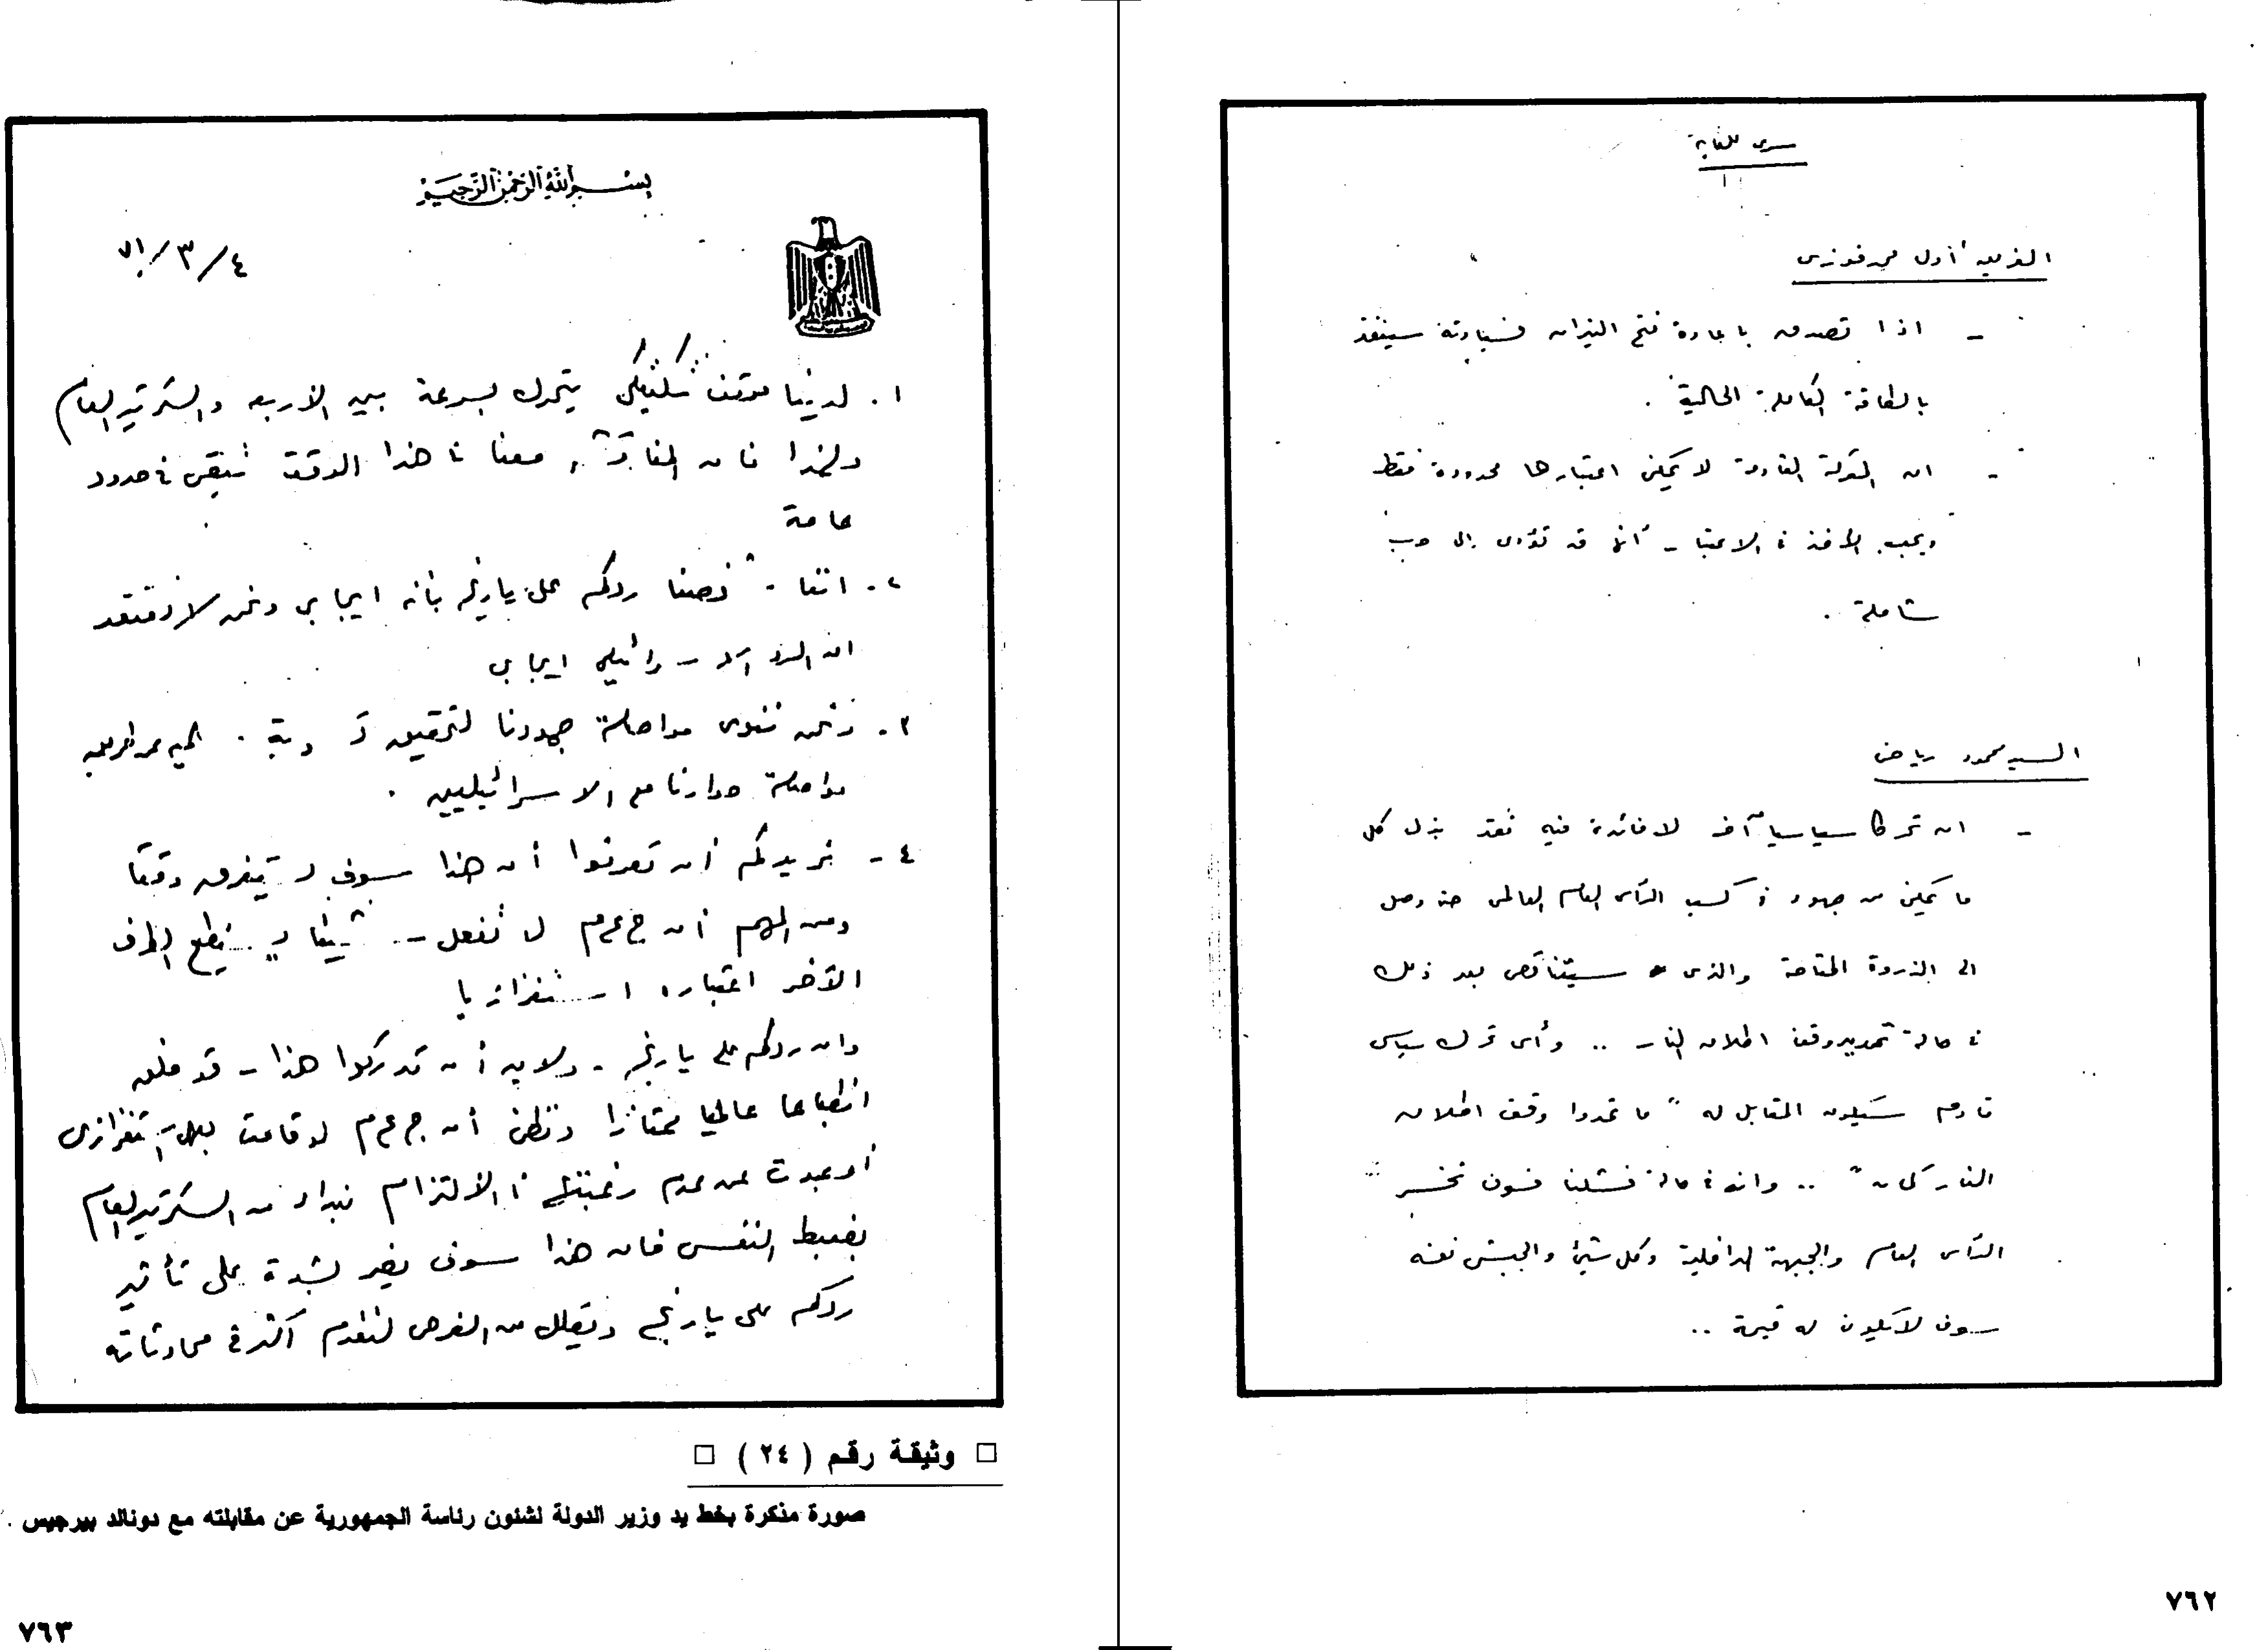 سرى للغاية
الفريق أول محمد فوزى
- اذا تصدق باعادة فتح النيران فسيادته سينفذ
بالطاقة الكاملة الحالية .
- ان المعركة القادمة لا يمكن اعتبارها محدودة فقط
ويجب الأخذ فى الاعتبار أنها قد تؤدى الى حرب
شاملة .
السيد محمود رياض
- ان تحركا سياسيا آخر لا فائدة فيه فقد بذل كل
ما يمكن من جهود فى كسب الرأى العام العالمى حتى وصل
الى الذروة المتاحة والذى سيتناقص بعد ذلك
فى حالة تمديد وقف اطلاق النار .. وأى تحرك سياسى
قادم سيكون المقابل له " ما تمدوا وقف اطلاق
النار كمان " .. وانه فى حالة فشلنا فسوف نخسر
الرأى العام والجبهة الداخلية وكل شئ والجيش نفسه
سوف لا يكون له قيمة ..
٧٦٢
بسم الله الرحمن الرحيم
٤/٣/٧١
١. لدينا موقف يتحرك بسرعة بين الاربعة والسكرتير العام
ولهذا فان معنا فى هذا الوقت ستبقى فى حدود
عامة
٢. اننا ردكم على يارنج بأنه ايجابى ونحن لا نعتقد
ان الرد الاسرائيلى ايجابى
٣. ونحن ننوى مواصلة جهودنا لتحقيق
مواصلة حوارنا مع الاسرائيليين .
٤- نريدكم أن تعرفوا أن هذا سوف يستغرق وقتا
ومن المهم أن ج ع م لا تفعل شيئا يستطيع الطرف
الآخر اعتباره استفزازيا
وان ردكم على يارنج - ولابد أن تدركوا هذا - قد خلق
انطباعا عالميا ممتازا ونظن أن ج ع م لو قامت بعمل استفزازى
أو عبرت عن عدم رغبتها فى الالتزام بنداء من السكرتير العام
بضبط النفس فان هذا سوف يضر بشدة على تأثير
ردكم على يارنج ويقلل من الفرص لتقدم أكثر فى محادثاته
□ وثيقة رقم ( ٢٤ ) □
صورة مذكرة بخط يد وزير الدولة لشئون رئاسة الجمهورية عن مقابلته مع دونالد بيرجيس .
٧٦٣